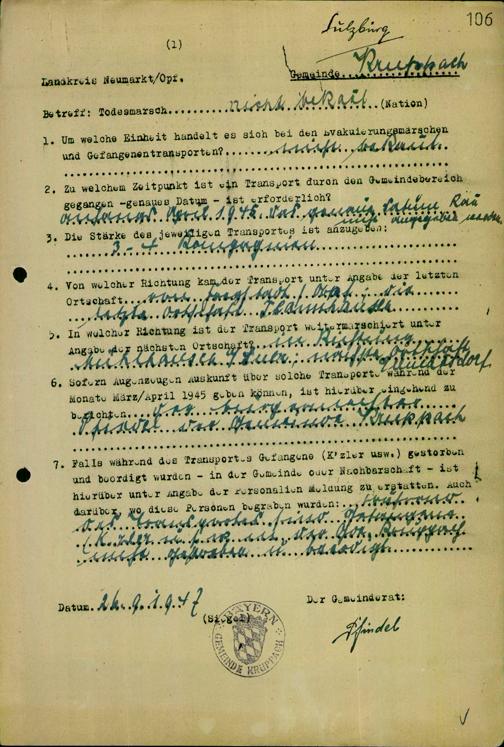 106
Sulzburg
(1)
Gemeinde Kruppach
Landkreis Neumarkt/Opf.
Betreff: Todesmarsch nicht bekannt (Nation)
1. Um welche Einheit handelt es sich bei den Evakuierungsmärschen
und Gefangenentransporten? nicht bekannt.
2. Zu welchem Zeitpunkt ist ein Transport durch den Gemeindebereich
gegangen -genaues Datum - ist erforderlich?
Anfangs April 1945 das genaue Datum kann
nicht angegeben werden.
3. Die Stärke des jeweiligen Transportes ist anzugeben:
3-4 Kompagnien
4. Von welcher Richtung kam der Transport unter Angabe der letzten
Ortschaft. von / Opf: die
letzte Ortschaft
5. In welcher Richtung ist der Transport weitermarschiert unter
Angabe der nächsten Ortschaft? in Richtung
Mühlhausen nächste Ortschaft
6. Sofern Augenzeugen Auskunft über solche Transporte während der
Monate März/April 1945 geben können, ist hierüber eingehend zu
berichten. Der Bürgermeister
der Gemeinde Kruppach
7. Falls während des Transportes Gefangene (K'zler usw.) gestorben
und beerdigt wurden - in der Gemeinde oder Nachbarschaft - ist
hierüber unter Angabe der Personalien Meldung zu erstatten. Auch
darüber, wo diese Personen begraben wurden:
des Gefangene
(K.zler in der Gde. Kruppach
nicht gestorben u. beerdigt.
Datum. 26.9.1947
(Siegel)
Der Gemeinderat:
BAYERN
GEMEINDE KRUPPACH